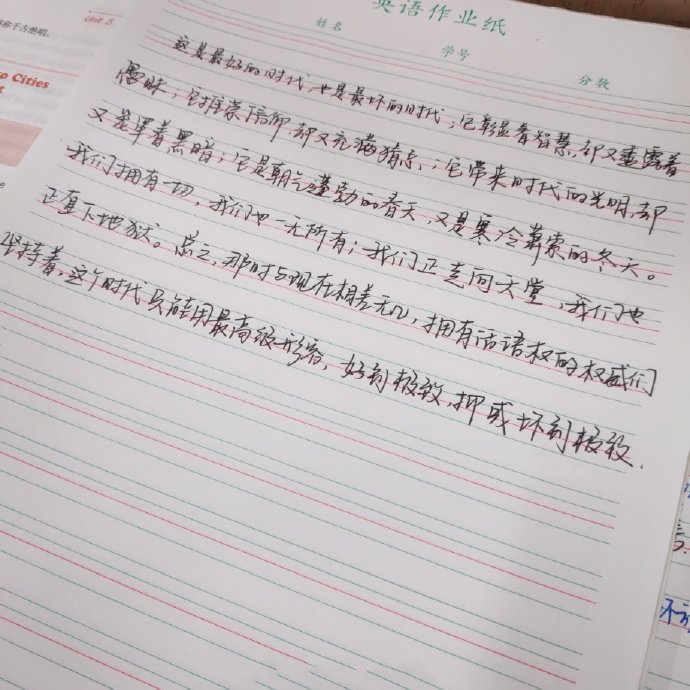 英语作业纸
姓名 学号 分数
Unit 5
Cities
这是最好的时代,也是最坏的时代;它彰显着智慧,却又壶露着
愚昧;它推崇信仰,却又充满猜忌;它带来时代的光明,却
又是罩着黑暗;它是朝气蓬勃的春天,又是寒冷萧索的冬天。
我们拥有一切,我们也一无所有;我们正走向天堂,我们也
正直下地狱。总之,那时与现在相差无几,拥有话语权的权威们
坚持着,这个时代只能用最高级形容,好到极致,抑或坏到极致.